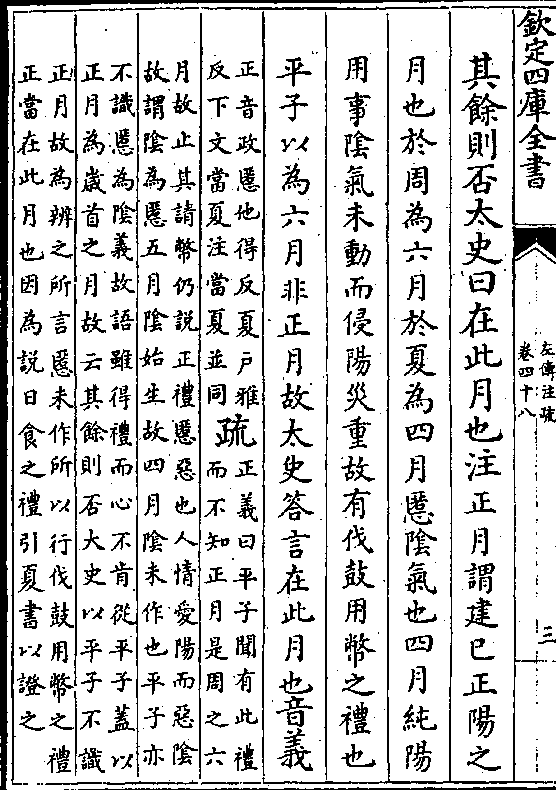 欽定四庫全書
左傳注疏
卷四十八
三
其餘則否太史曰在此月也注正月謂建巳正陽之
月也於周為六月於夏為四月慝陰氣也四月純陽
用事陰氣未動而侵陽災重故有伐鼓用幣之禮也
平子以為六月非正月故太史答言在此月也音義
正音政慝他得反夏戶雅
反下文當夏注當夏並同
疏
正義曰平子聞有此禮
而不知正月是周之六
月故止其請幣仍說正禮慝惡也人情愛陽而惡陰
故謂陰為慝五月陰始生故四月陰未作也平子亦
不識慝為陰義故語雖得禮而心不肯從平子蓋以
正月為歲首之月故云其餘則否大史以平子不識
正月故為辨之所言慝未作所以行伐鼓用幣之禮
正當在此月也因為說日食之禮引夏書以證之